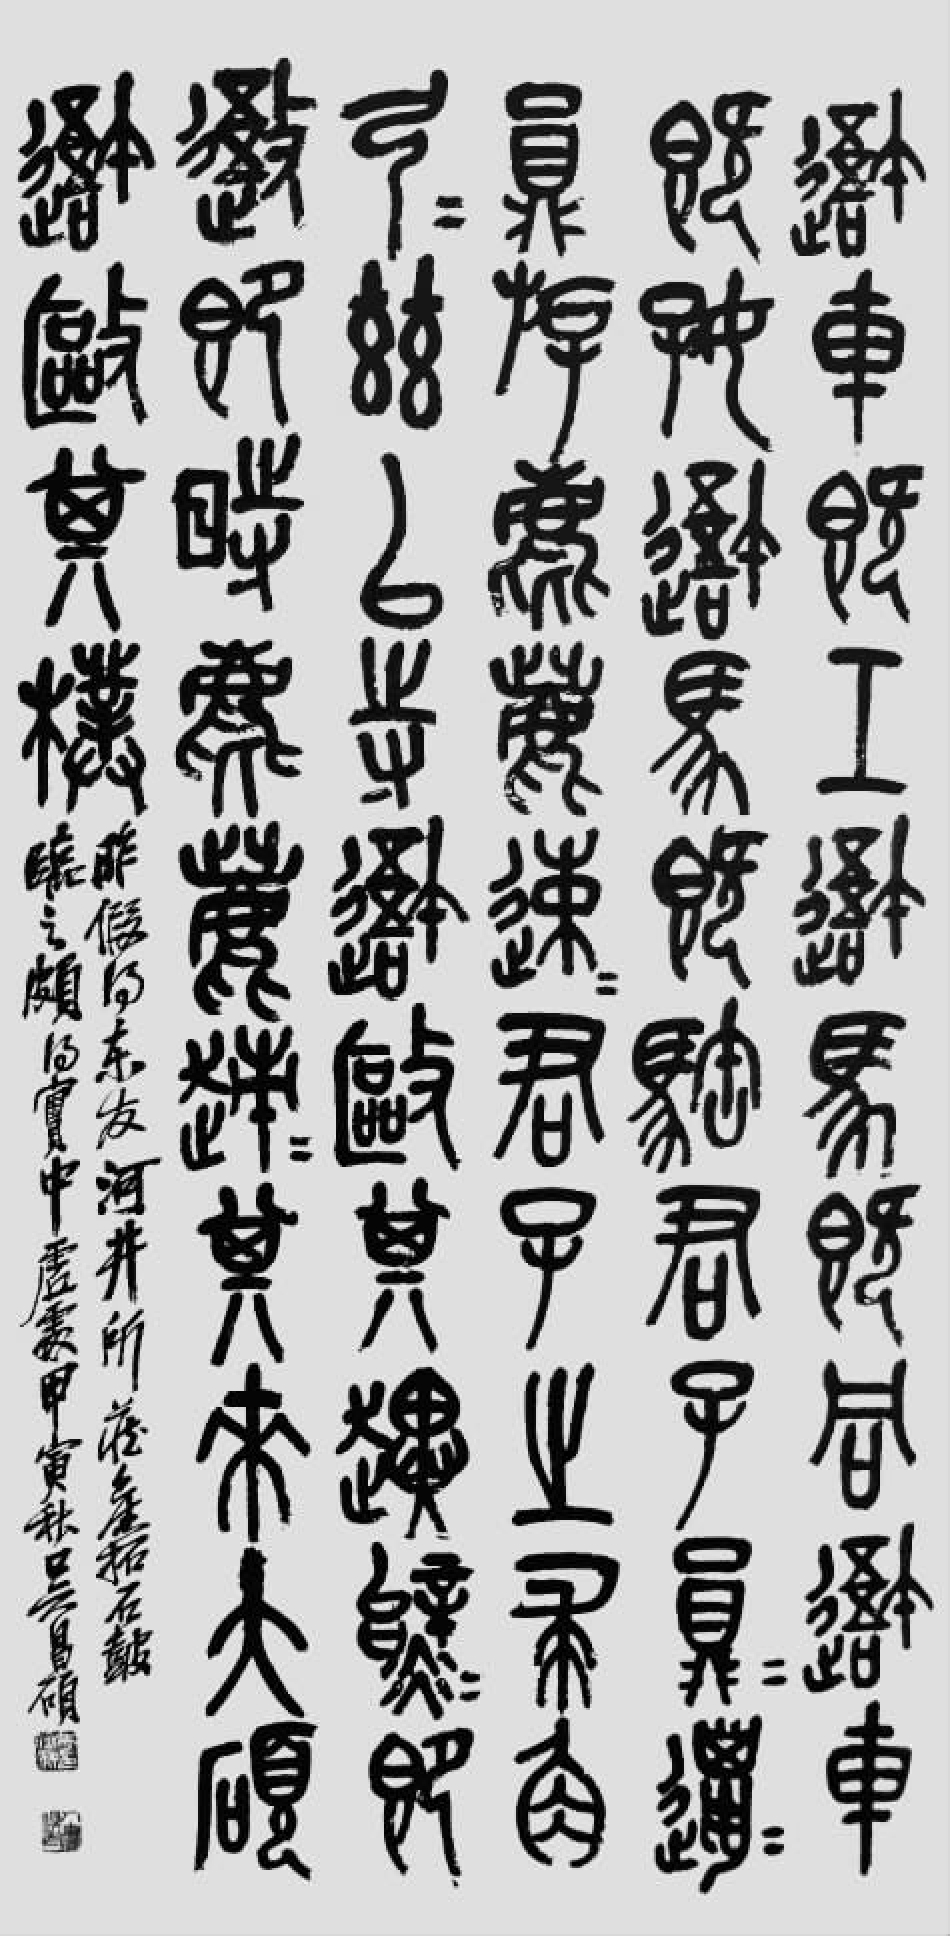 吾車既工吾馬既同吾車
既好吾馬既𩢡君子員=邋=
員斿麀鹿速=君子之求
弓=茲以寺吾敺其趩=即
即時麀鹿趚=其來大
吾敺其樸
昨假得東友河井所藏舊拓石鼓
臨之頗得實中虛處甲寅秋吳昌碩